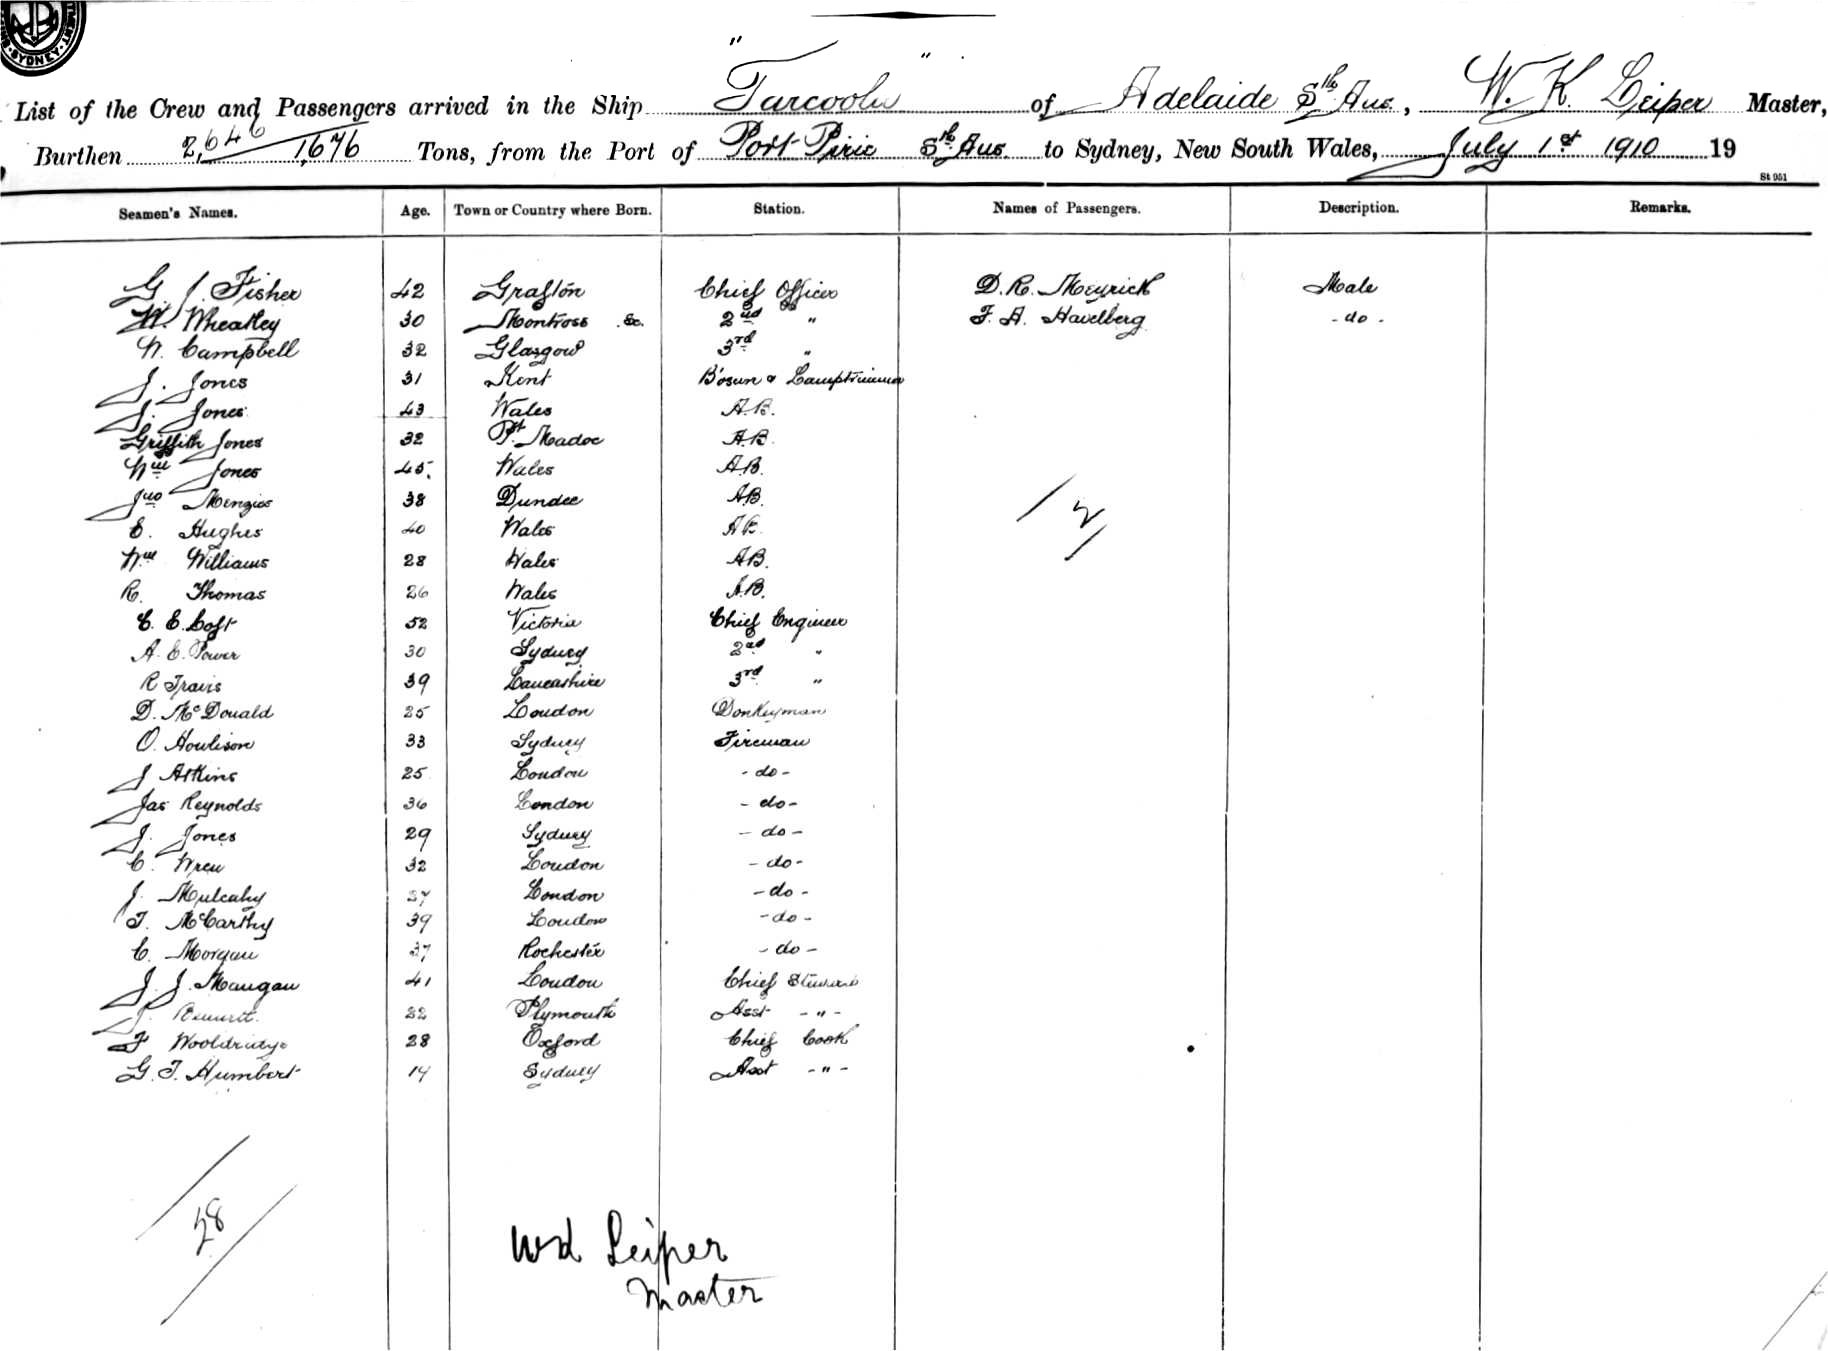 SYDNEY
List of the Crew and Passengers arrived in the Ship "Tarcoola" of Adelaide Sth Aus, W. K. Leiper Master,
Burthen 2,646 / 1,676 Tons, from the Port of Port Pirie Sth Aus. to Sydney, New South Wales, July 1st 1910 19
St 951
Seamen's Names. Age. Town or Country where Born. Station. Names of Passengers. Description. Remarks.
G. J. Fisher 42 Grafton Chief Officer D. R. Meyrick Male
W. Wheatley 30 Montrose Sc. 2nd " F. A. Havelberg - do -
N. Campbell 32 Glasgow 3rd "
J. Jones 31 Kent B'osun & Lamptrimmer
J. Jones 43 Wales A.B.
Griffith Jones 32 Pt. Madoc A.B.
Wm Jones 45. Wales A.B.
Jno Menzies 38 Dundee AB.
E. Hughes 40 Wales AB.
Wm Williams 28 Wales AB.
R. Thomas 26 Wales A.B.
C. E. Coft 52 Victoria Chief Engineer
A. E. Power 30 Sydney 2nd "
R Travis 39 Lancashire 3rd "
D. McDonald 25 London Donkeyman
O. Howlison 33 Sydney Fireman
J Atkins 25 London - do -
Jas Reynolds 36 London - do -
J. Jones 29 Sydney - do -
C. Wren 32 London - do -
J. Mulcahy London - do -
T. McCarthy 39 London - do -
C. Morgan 37 Rochester - do -
J. J. Maugan 41 London Chief Steward
J. Bennett 22 Plymouth Asst - " -
F Wooldridge 28 Oxford Chief Cook
G. T. Humbert 19 Sydney Asst - " -
/ 2 /
/ 28 /
Leiper
Master